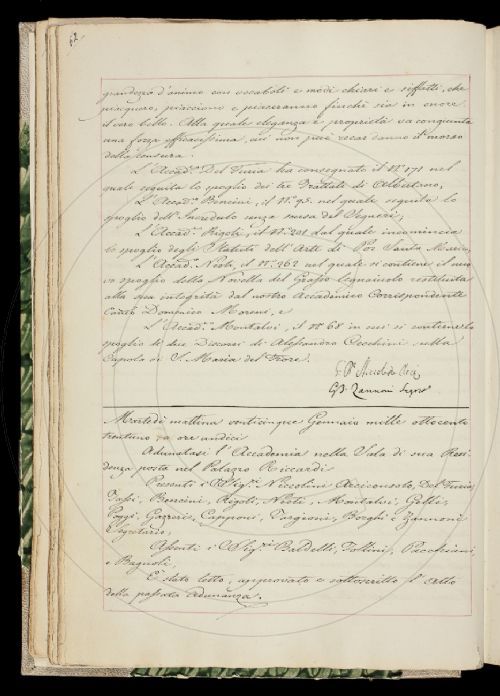 62
grandezza d'animo con vocaboli e modi chiari e siffatti, che
piacquero, piacciono e piaceranno finchè sia in onore
il vero bello. Alla quale eleganza e proprietà va congiunta
una forza efficacissima, cui non può recar danno il morso
della censura.
L'Accad.º Del Furia ha consegnato il N.º 171 nel
quale seguita lo spoglio dei tre Trattati di Albertano,
L'Accad.º Bencini, il N.º 95. nel quale seguita lo
spoglio dell'Incredulo senza scusa del Segneri,
L'Accad.º Rigoli, il N.º 201 dal quale incomincia
lo spoglio degli Statuti dell'Arte di Por Santa Maria,
L'Accad.º Nesti, il N.º 262 nel quale si contiene il nuo
vo spoglio della Novella del Grasso legnaiuolo restituita
alla sua integrità dal nostro Accademico Corrispondente
Can.co Domenico Moreni, e
L'Accad.º Montalvi, il N.º 68 in cui si contiene lo
spoglio di due Discorsi di Alessandro Cecchini sulla
Cupola di S. Maria del Fiore.
G. B. Zannoni Segret.º
Martedì mattina venticinque Gennaio mille ottocento
trentuno a ore undeci
Adunatasi l'Accademia nella Sala di sua Resi
denza posta nel Palazzo Riccardi
Presenti i Sig.ri Niccolini Arciconsolo, Del Furia,
Bencini, Rigoli, Nesti, Montalvi, Gelli,
Poggi, Gazzeri, Capponi, Targioni, Borghi e Zannoni
Segretario,
Assenti i Sig.ri Baldelli, Follini, Pacchiani
e Bagnoli,
È stato letto, approvato e sottoscritto l'Atto
della passata Adunanza.